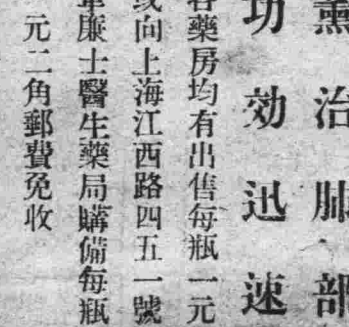 薰治肺部
功効迅速
藥房均有出售每瓶一元
或向上海江西路四五一號
韋廉士醫生藥局購備每瓶
元二角郵費免收